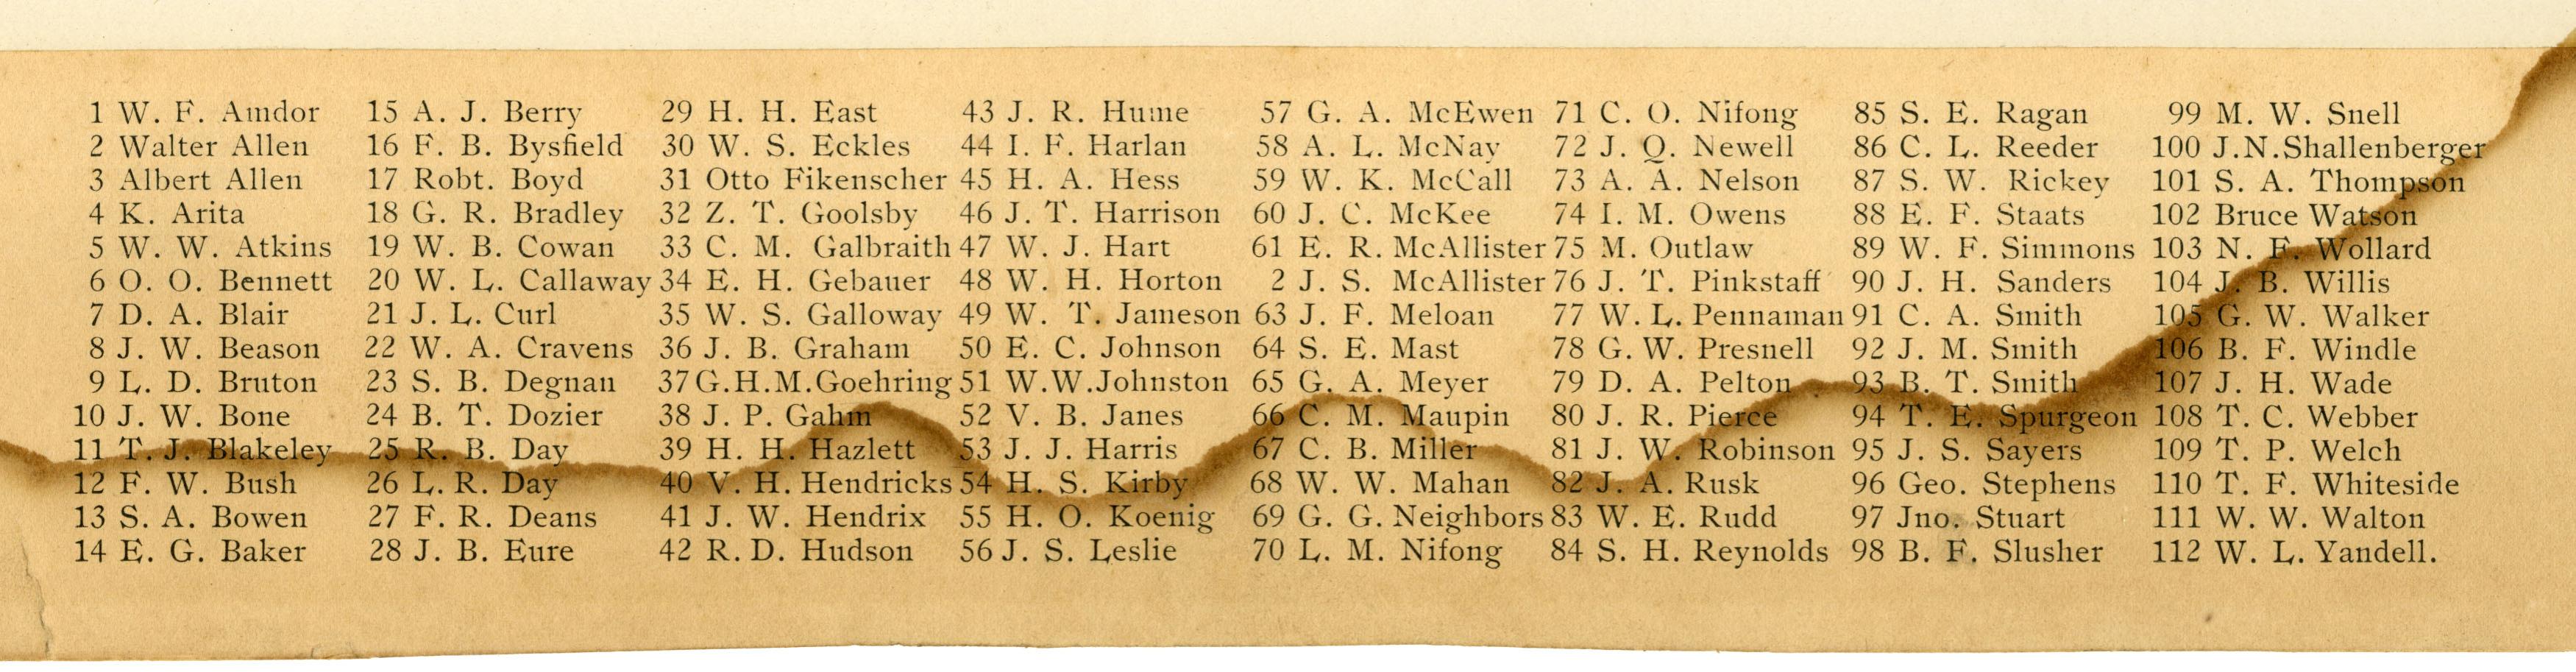 1 W. F. Amdor
2 Walter Allen
3 Albert Allen
4 K. Arita
5 W. W. Atkins
6 O. O. Bennett
7 D. A. Blair
8 J. W. Beason
9 L. D. Bruton
10 J. W. Bone
11 T. J. Blakeley
12 F. W. Bush
13 S. A. Bowen
14 E. G. Baker
15 A. J. Berry
16 F. B. Bysfield
17 Robt. Boyd
18 G. R. Bradley
19 W. B. Cowan
20 W. L. Callaway
21 J. L. Curl
22 W. A. Cravens
23 S. B. Degnan
24 B. T. Dozier
25 R. B. Day
26 L. R. Day
27 F. R. Deans
28 J. B. Eure
29 H. H. East
30 W. S. Eckles
31 Otto Fikenscher
32 Z. T. Goolsby
33 C. M. Galbraith
34 E. H. Gebauer
35 W. S. Galloway
36 J. B. Graham
37 G.H.M.Goehring
38 J. P. Gahm
39 H. H. Hazlett
40 V. H. Hendricks
41 J. W. Hendrix
42 R. D. Hudson
43 J. R. Hume
44 I. F. Harlan
45 H. A. Hess
46 J. T. Harrison
47 W. J. Hart
48 W. H. Horton
49 W. T. Jameson
50 E. C. Johnson
51 W.W.Johnston
52 V. B. Janes
53 J. J. Harris
54 H. S. Kirby
55 H. O. Koenig
56 J. S. Leslie
57 G. A. McEwen
58 A. L. McNay
59 W. K. McCall
60 J. C. McKee
61 E. R. McAllister
2 J. S. McAllister
63 J. F. Meloan
64 S. E. Mast
65 G. A. Meyer
66 C. M. Maupin
67 C. B. Miller
68 W. W. Mahan
69 G. G. Neighbors
70 L. M. Nifong
71 C. O. Nifong
72 J. Q. Newell
73 A. A. Nelson
74 I. M. Owens
75 M. Outlaw
76 J. T. Pinkstaff
77 W. L. Pennaman
78 G. W. Presnell
79 D. A. Pelton
80 J. R. Pierce
81 J. W. Robinson
82 J. A. Rusk
83 W. E. Rudd
84 S. H. Reynolds
85 S. E. Ragan
86 C. L. Reeder
87 S. W. Rickey
88 E. F. Staats
89 W. F. Simmons
90 J. H. Sanders
91 C. A. Smith
92 J. M. Smith
93 B. T. Smith
94 T. E. Spurgeon
95 J. S. Sayers
96 Geo. Stephens
97 Jno. Stuart
98 B. F. Slusher
99 M. W. Snell
100 J.N.Shallenberger
101 S. A. Thompson
102 Bruce Watson
103 N. F. Wollard
104 J. B. Willis
105 G. W. Walker
106 B. F. Windle
107 J. H. Wade
108 T. C. Webber
109 T. P. Welch
110 T. F. Whiteside
111 W. W. Walton
112 W. L. Yandell.